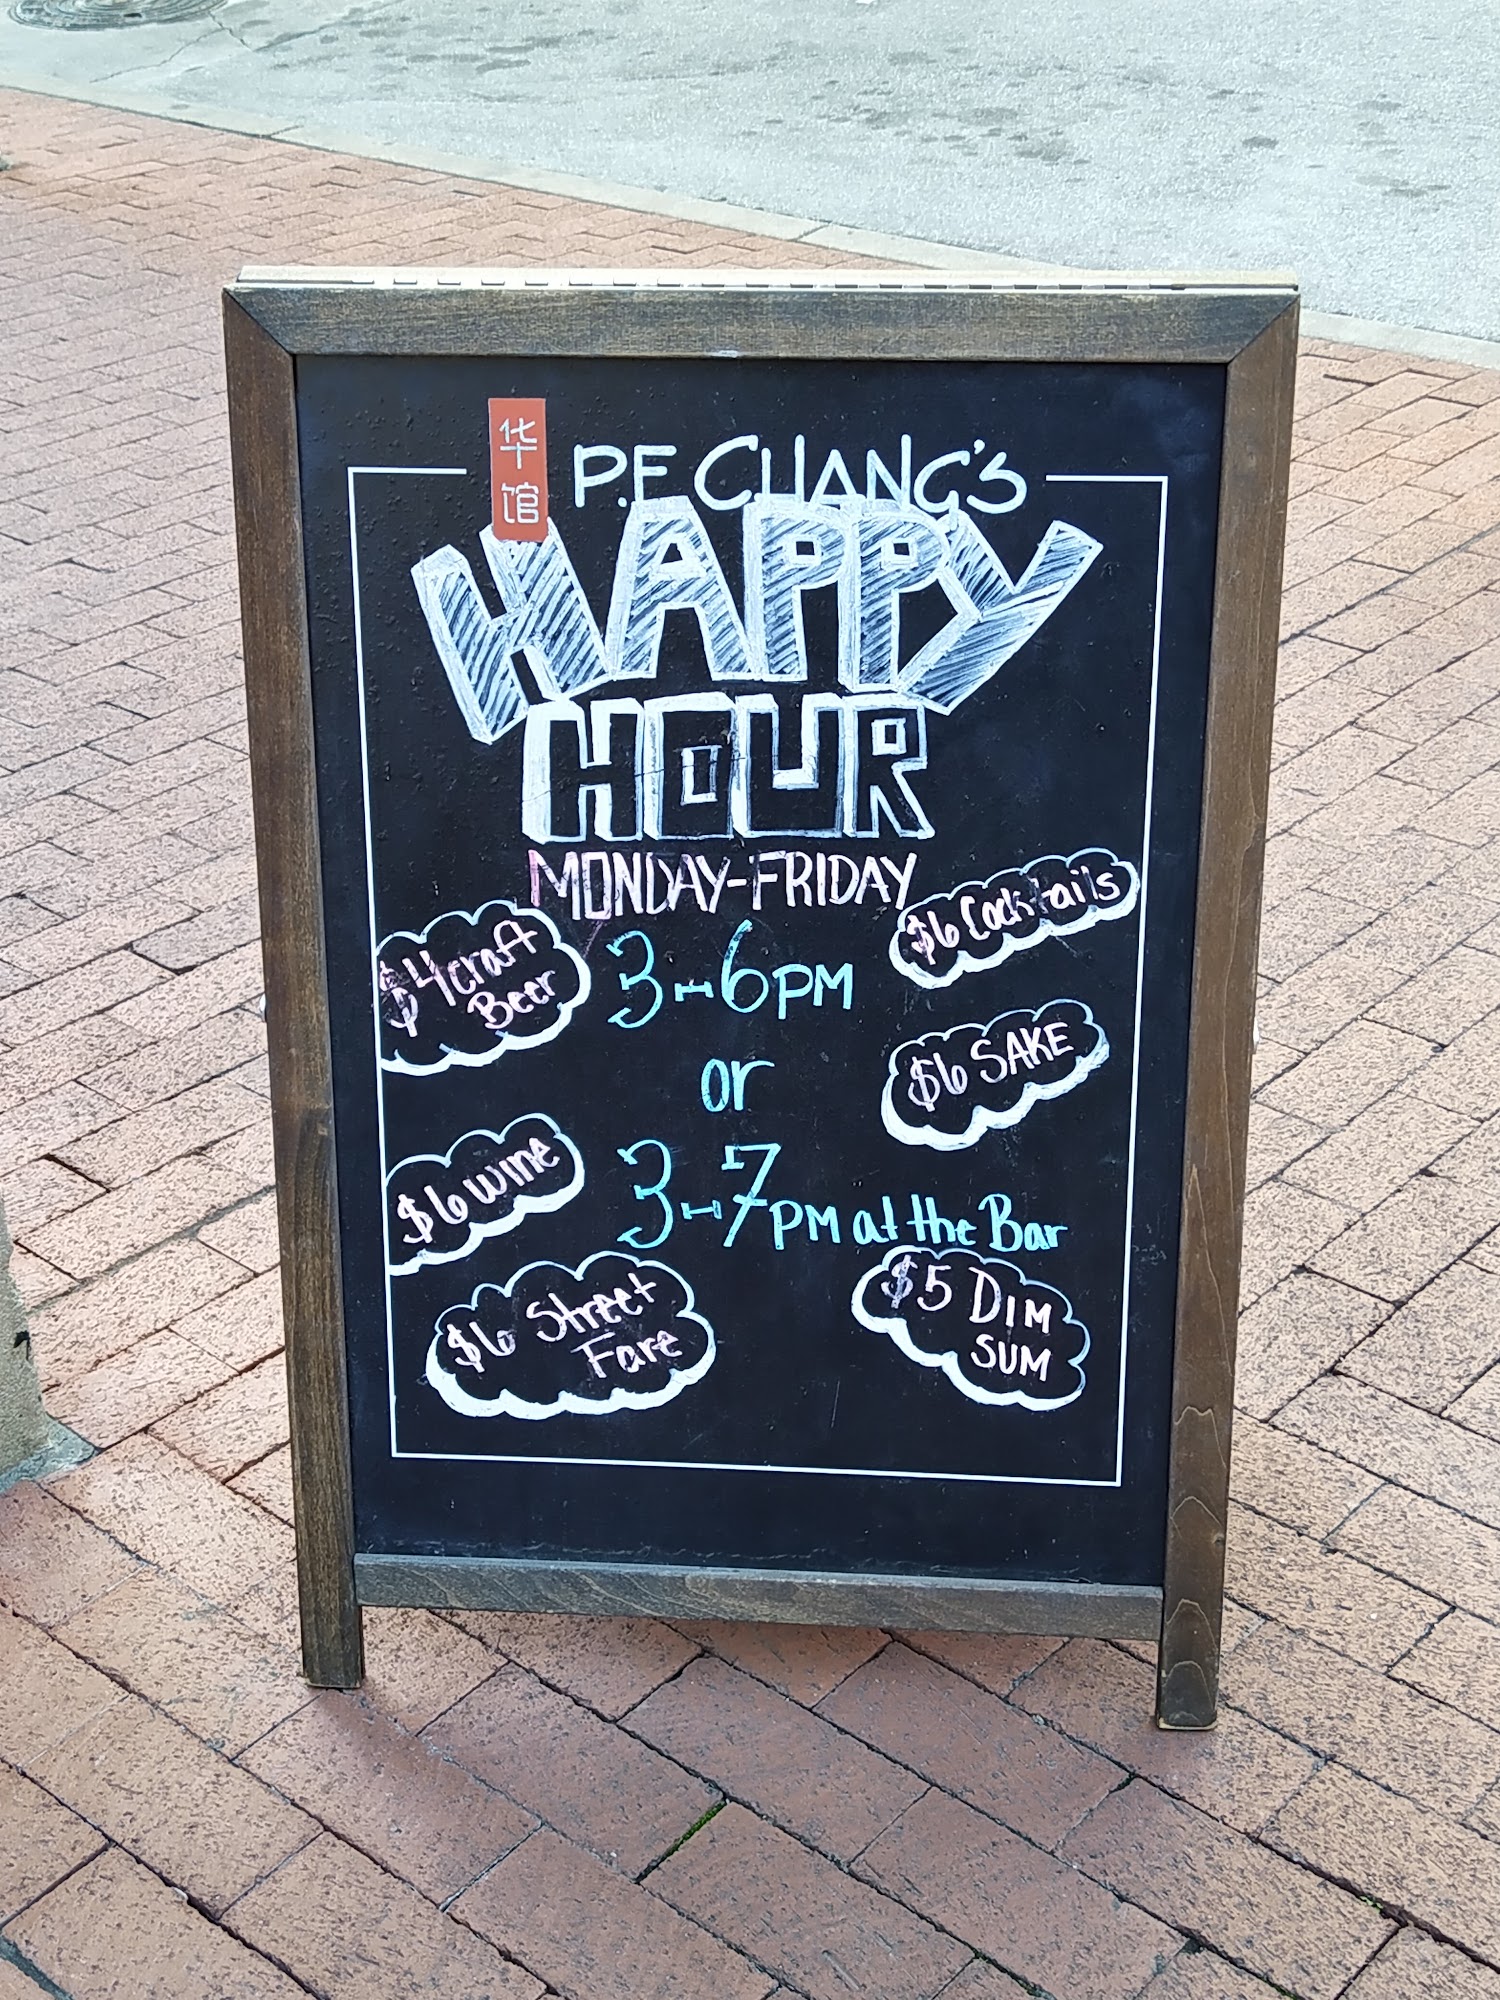 华
馆
P.F. CHANG'S
HAPPY
HOUR
MONDAY-FRIDAY
$4 craft
Beer
3-6PM
$6 Cocktails
or
$6 SAKE
$6 wine
3-7PM at the Bar
$6 Street
Fare
$5 DIM
SUM